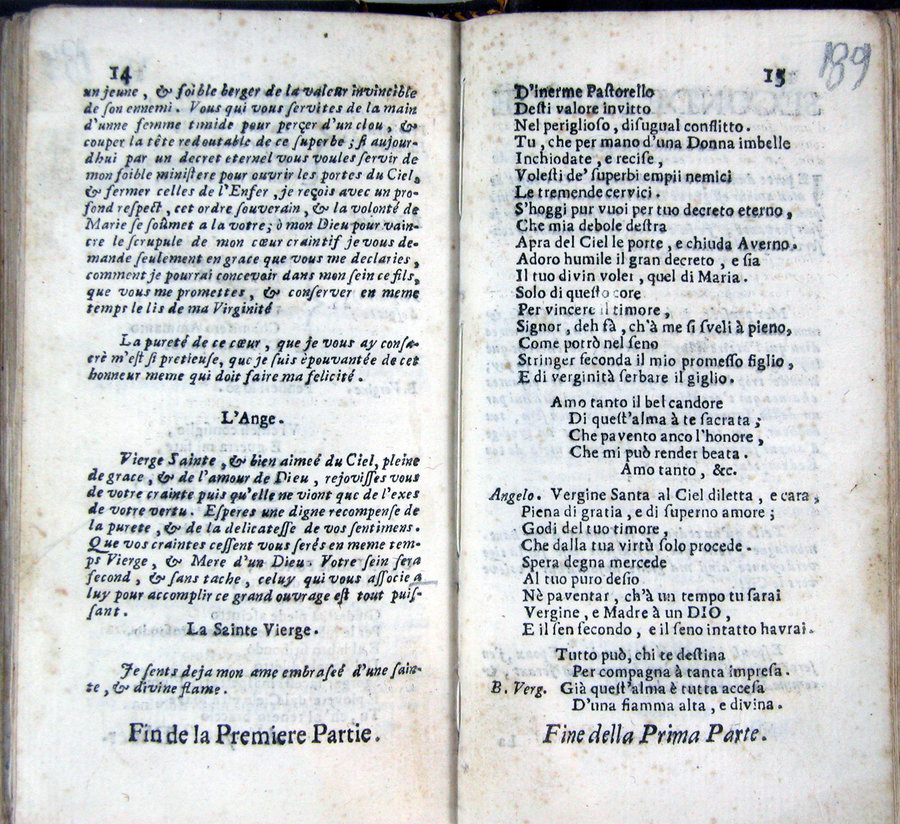 14
un jeune, & foible berger de la valeur invincible
de son ennemi. Vous qui vous servites de la main
d'unne femme timide pour perçer d'un clou, &
couper la tête redoutable de ce superbe; si aujour-
dhui par un decret eternel vous voules servir de
mon foible ministere pour ouvrir les portes du Ciel,
& fermer celles de l'Enfer, je reçois avec un pro-
fond respect, cet ordre souverain, & la volonté de
Marie se soûmet a la votre; ò mon Dieu pour vain-
cre le scrupule de mon cœur craintif je vous de-
mande seulement en grace que vous me declaries,
comment je pourrai concevair dans mon sein ce fils,
que vous me promettes, & conserver en meme
temps le lis de ma Virginité
La pureté de ce cœur, que je vous ay consa-
erè m'est si pretieuse, que je suis èpouvantée de cet
honneur meme qui doit faire ma felicité.
L'Ange.
Vierge Sainte, & bien aimeé du Ciel, pleine
de grace, & de l'amour de Dieu, rejovisses vous
de votre crainte puis qu'elle ne viont que de l'exes
de votre vertu. Esperes une digne recompense de
la purete, & de la delicatesse de vos sentimens.
Que vos craintes cessent vous serés en meme tem-
ps Vierge, & Mere d'un Dieu. Votre sein sera
fecond, & sans tache, celuy qui vous associe a
luy pour accomplir ce grand ouvrage est tout puis-
sant.
La Sainte Vierge.
Je sents deja mon ame embraseé d'une sain-
te, & divine flame.
Fin de la Premiere Partie.
15
189
D'inerme Pastorello
Desti valore invitto
Nel periglioso, disugual conflitto.
Tu, che per mano d'una Donna imbelle
Inchiodate, e recise,
Volesti de' superbi empii nemici
Le tremende cervici.
S'hoggi pur vuoi per tuo decreto eterno,
Che mia debole destra
Apra del Ciel le porte, e chiuda Averno.
Adoro humile il gran decreto, e sia
Il tuo divin voler, quel di Maria.
Solo di questo core
Per vincere il timore,
Signor, deh sà, ch'à me si sveli à pieno,
Come potrò nel seno
Stringer feconda il mio promesso figlio,
E di verginità serbare il giglio.
Amo tanto il bel candore
Di quest'alma à te sacrata;
Che pavento anco l'honore,
Che mi può render beata.
Amo tanto, &c.
Angelo. Vergine Santa al Ciel diletta, e cara,
Piena di gratia, e di superno amore;
Godi del tuo timore,
Che dalla tua virtù solo procede.
Spera degna mercede
Al tuo puro desio
Nè paventar, ch'à un tempo tu sarai
Vergine, e Madre à un DIO,
E il sen fecondo, e il seno intatto havrai.
Tutto può, chi te destina
Per compagna à tanta impresa.
B. Verg. Già quest'alma è tutta accesa
D'una fiamma alta, e divina.
Fine della Prima Parte.